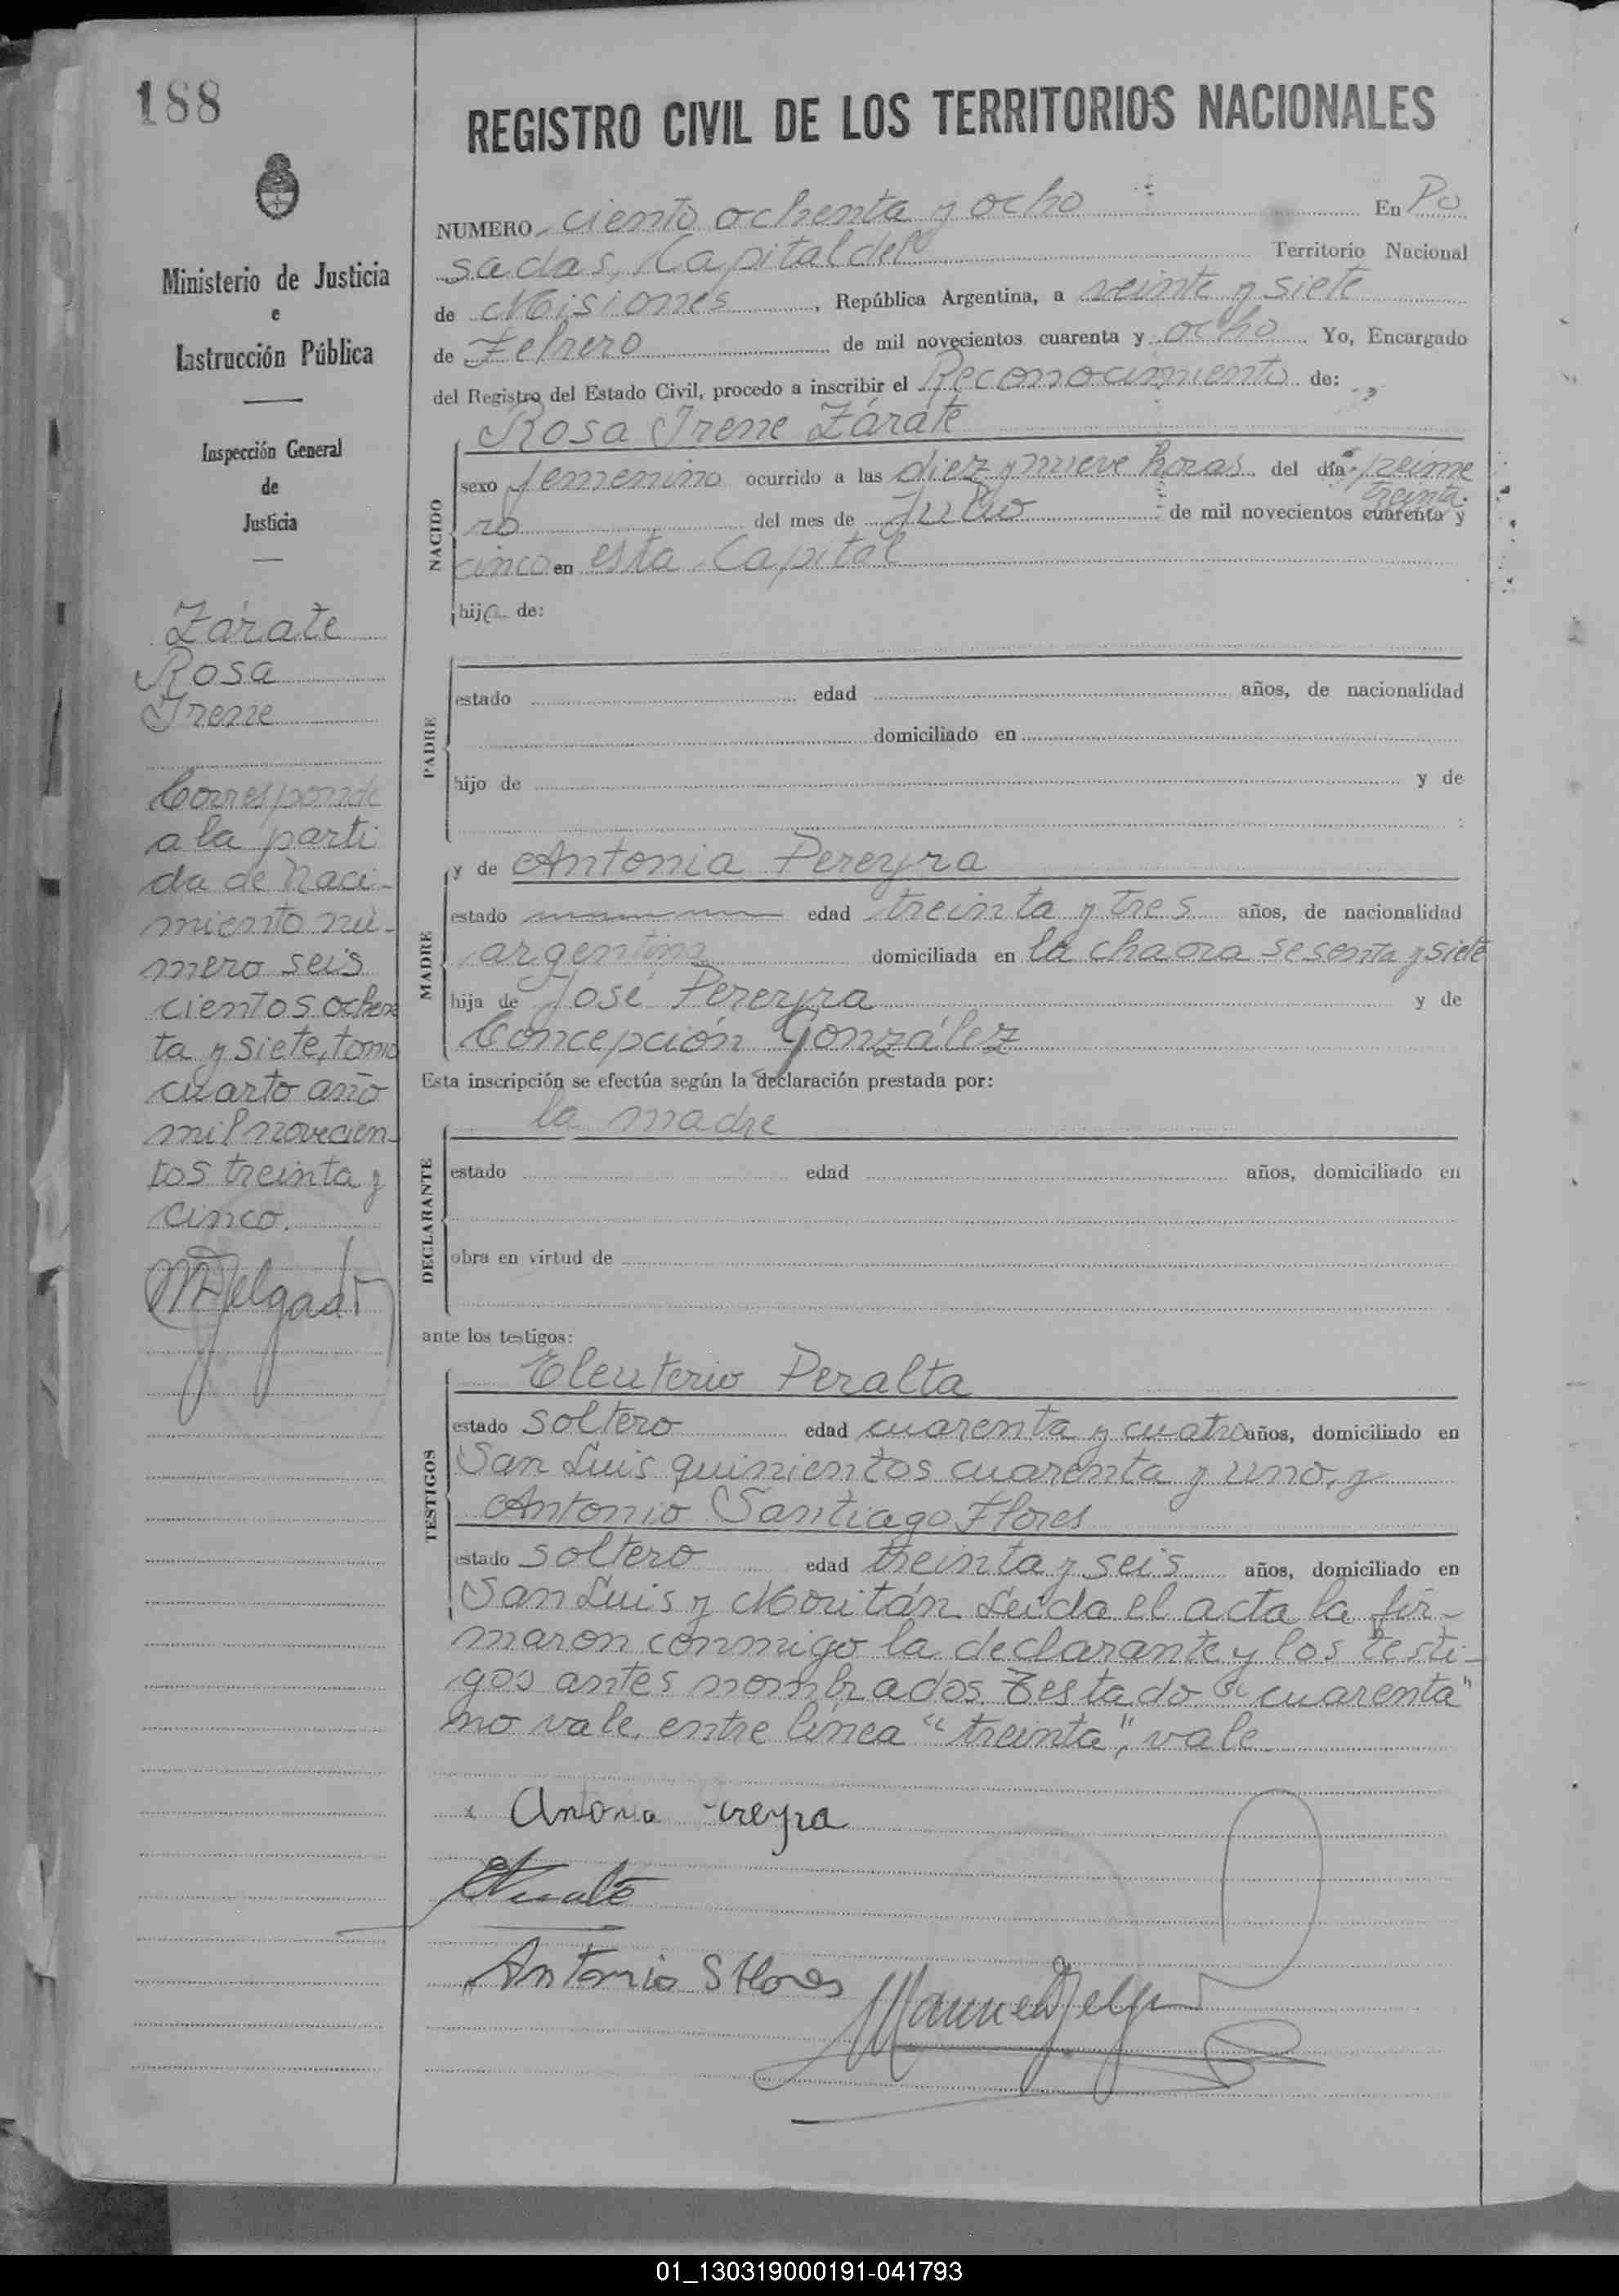 188
Ministerio de Justicia
e
Instrucción Pública
Inspección General
de
Justicia
Zárate
Rosa
Irene
Corresponde
a la parti
da de Naci-
miento nú-
mero seis
cientos ochen
ta y siete, tomo
cuarto año
mil novecien-
tos treinta y
cinco.
MDelgado
REGISTRO CIVIL DE LOS TERRITORIOS NACIONALES
NUMERO ciento ochenta y ocho En Po
sadas, Capital del Territorio Nacional
de Misiones, República Argentina, a veinte y siete
de Febrero de mil novecientos cuarenta y ocho Yo, Encargado
del Registro del Estado Civil, procedo a inscribir el Reconocimiento de:
Rosa Irene Zárate
NACIDO
sexo femenino ocurrido a las diez y nueve horas del día prime
treinta
ro del mes de Julio de mil novecientos cuarenta y
cinco en esta Capital
hija de:
PADRE
estado edad años, de nacionalidad
domiciliado en
hijo de y de
MADRE
y de Antonia Pereyra
estado edad treinta y tres años, de nacionalidad
argentina domiciliada en la chacra sesenta y siete
hija de José Pereyra y de
Concepción González
Esta inscripción se efectúa según la declaración prestada por:
la madre
DECLARANTE
estado edad años, domiciliado en
obra en virtud de
ante los testigos:
TESTIGOS
Eleuterio Peralta
estado soltero edad cuarenta y cuatro años, domiciliado en
San Luis quinientos cuarenta y uno, y
Antonio Santiago Flores
estado soltero edad treinta y seis años, domiciliado en
San Luis y Moritán. Leída el acta la fir-
maron conmigo la declarante y los testi-
gos antes nombrados. Testado "cuarenta"
no vale, entre línea "treinta", vale
x Antonia Pereyra
Antonio S Flores
Manuel Delgado
01_130319000191-041793